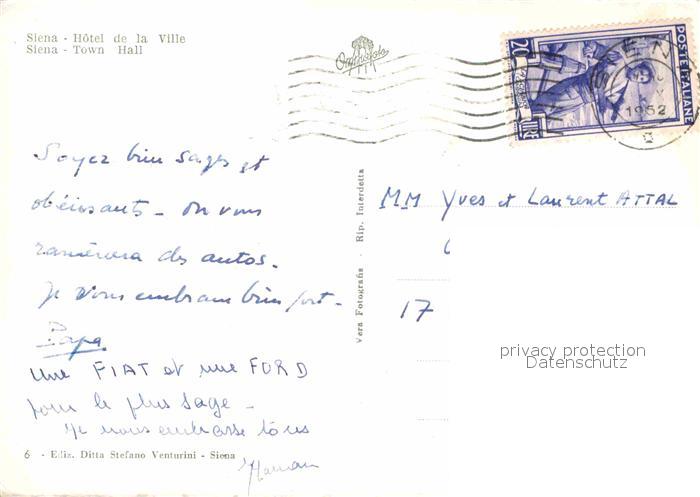 Siena - Hôtel de la Ville
Siena - Town Hall
Soyez bien sages et
obéissants - on vous
ramènera des autos.
Je vous embrasse bien fort -
Papa
Une FIAT et une FORD
pour le plus sage -
Je vous embrasse tous
Maman
6 - Ediz. Ditta Stefano Venturini - Siena
Vera Fotografia - Rip. Interdetta
POSTE ITALIANE
20
LIRE
SIENA
1952
MM Yves et Laurent ATTAL
17
privacy protection
Datenschutz